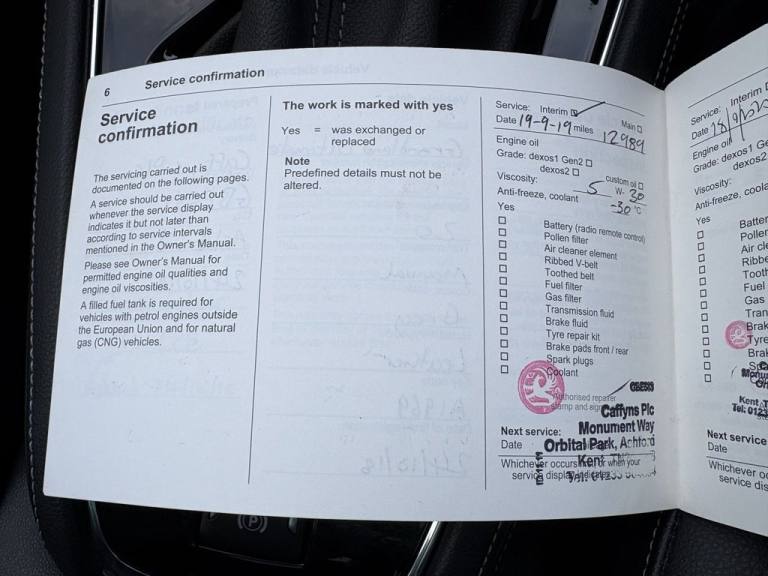 6 Service confirmation
Service
confirmation
The servicing carried out is
documented on the following pages.
A service should be carried out
whenever the service display
indicates it but not later than
according to service intervals
mentioned in the Owner's Manual.
Please see Owner's Manual for
permitted engine oil qualities and
engine oil viscosities.
A filled fuel tank is required for
vehicles with petrol engines outside
the European Union and for natural
gas (CNG) vehicles.
The work is marked with yes
Yes = was exchanged or
replaced
Note
Predefined details must not be
altered.
Service: Interim Main
Date 19-9-19 miles 12989
Engine oil
Grade: dexos1 Gen2
dexos2
custom oil
Viscosity: 5 W- 30
Anti-freeze, coolant -30 °C
Yes
Battery (radio remote control)
Pollen filter
Air cleaner element
Ribbed V-belt
Toothed belt
Fuel filter
Gas filter
Transmission fluid
Brake fluid
Tyre repair kit
Brake pads front / rear
Spark plugs
Coolant
Authorised repairer
stamp and
Caffyns Plc
Monument Way
Orbital Park, Ashford
Kent
Next service:
Date
Whichever occurs or when your
service display
Service: Interim
Date
Engine oil
Grade: dexos1 Ge
dexos2
Viscosity:
Anti-freeze, coola
Yes
Batte
Poller
Air cle
Ribbe
Tooth
Fuel
Gas
Tran
Brak
Tyre
Brak
Kent T
Tel: 0123
Next service
Date
Whichever oc
service dis